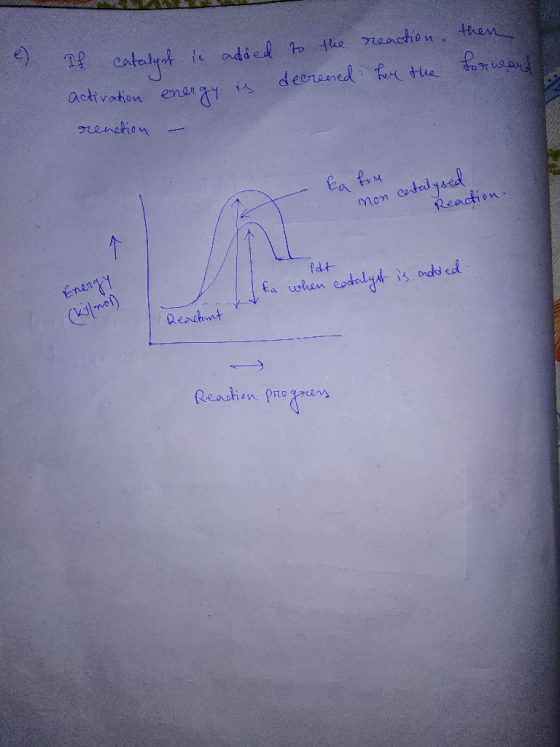 e) If catalyst is added to the reaction. then
activation energy is decreased for the forward
reaction —
Ea for
non catalysed
Reaction.
Energy
(kJ/mol)
Pdt
Ea when catalyst is added.
Reactant
Reaction progress